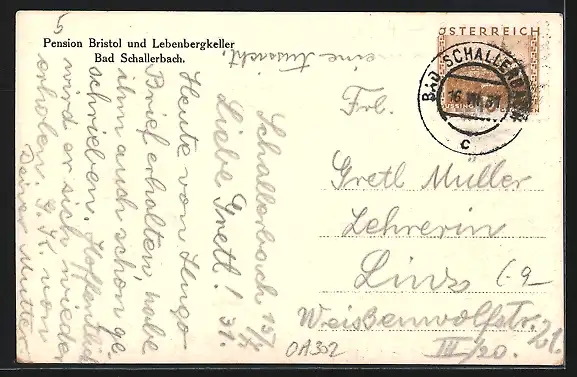 Pension Bristol und Lebenbergkeller
Bad Schallerbach.
eine Aussicht.
5
Schallerbach 15/7
31.
Liebe Gretl!
Heute von Hugo
Brief erhalten, habe
ihm auch schon ge-
schrieben. Hoffentlich
wird er sich wieder
erholen. G. K. von
Deiner Mutter
ÖSTERREICH
BAD SCHALLERBACH
c
Frl.
Gretl Müller
Lehrerin
Linz
Weißenwolfstr.
III/20.
OA302